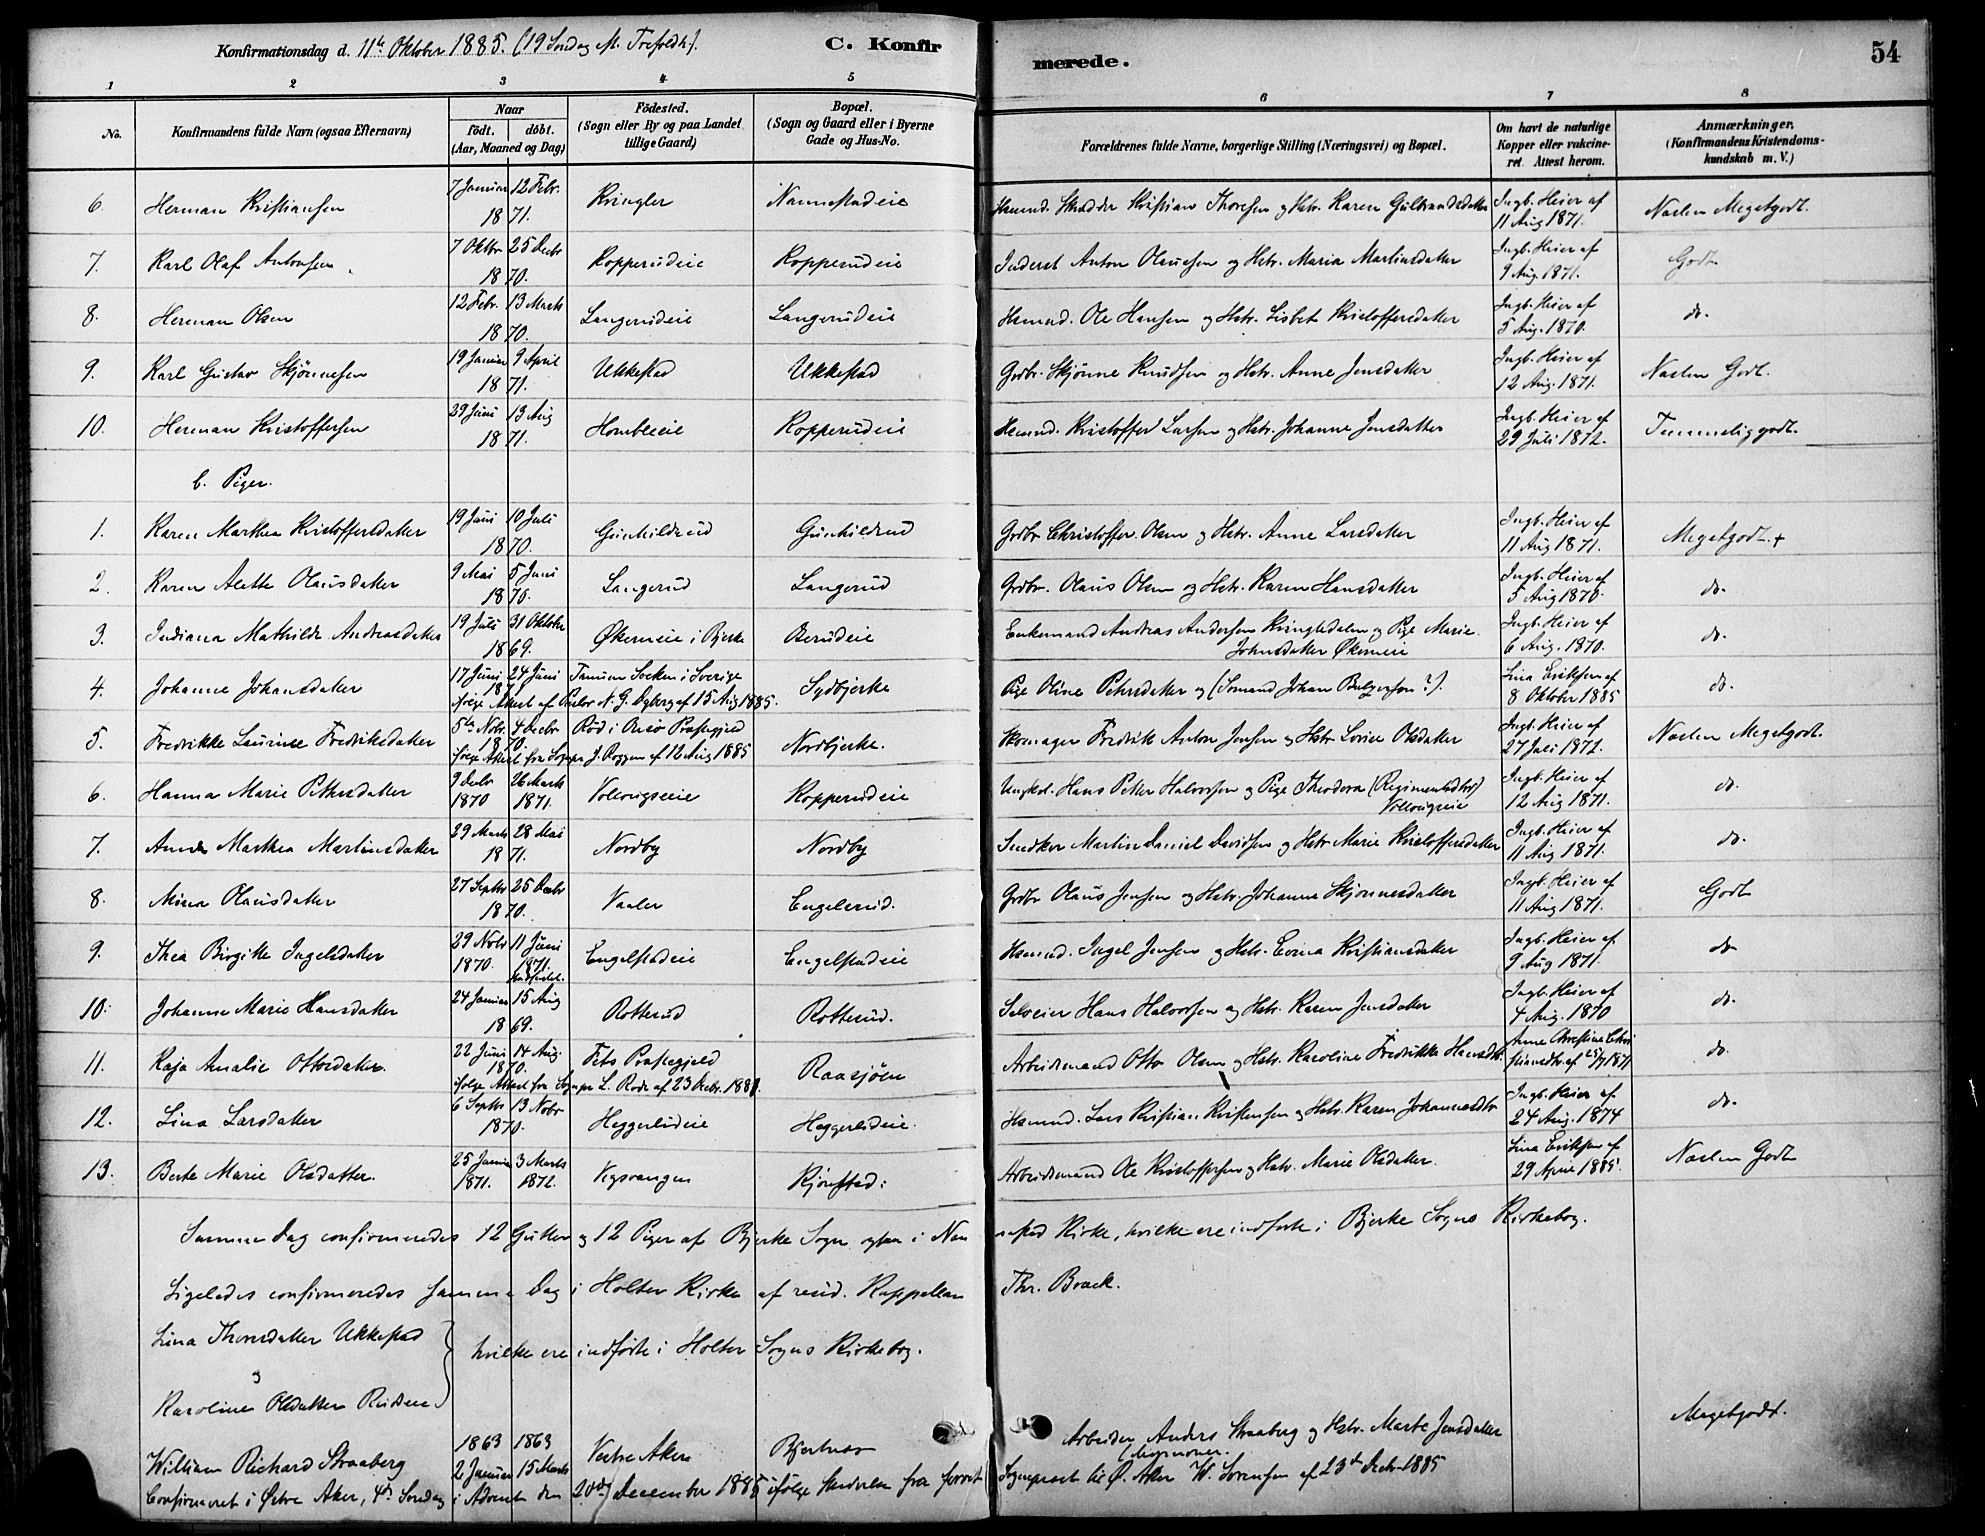 Konfirmationsdag d. 11te Oktober 1885. (19 Søndag M. Trefoldh.).
C. Konfirmerede.
54
1 2 3 4 5 6 7 8
No.
Konfirmandens fulde Navn (ogsaa Efternavn)
Naar født. døbt. (Aar, Maaned og Dag)
Fødested. (Sogn eller By og paa Landet tillige Gaard)
Bopæl. (Sogn og Gaard eller i Byerne Gade og Hus-No.
Forældrenes fulde Navne, borgerlige Stilling (Næringsvei) og Bopæl.
Om havt de naturlige Kopper eller vakcineret. Attest herom.
Anmærkninger. (Konfirmandens Kristendomskundskab m. V.)
6. Herman Kristiansen 7 Januar 12 Febr. 1871. Kringler Nannestadeie Husmd. Skrædder Kristian Thoresen og Hstr. Karen Gulbrandsdatter Ingb. Heier af 11 Aug 1871. Næsten Megetgodt.
7. Karl Olaf Antonsen 7 Oktbr 25 Decbr 1870. Kopperudeie Kopperudeie Inderst Anton Olausen og Hstr. Maria Martinsdatter Ingb. Heier af 9 Aug. 1871. Godt
8. Herman Olsen 12 Febr. 13 Marts 1870. Langerudeie Langerudeie Husmd. Ole Hansen og Hstr. Lisbet Kristoffersdatter Ingb. Heier af 5 Aug. 1870. do.
9. Karl Gustav Skjønnesen 19 Januar 9 April 1871. Ukkestad Ukkestad Grdbr. Skjønne Knudsen og Hstr. Anne Jensdatter Ingb. Heier af 12 Aug. 1871. Næsten Godt.
10. Herman Kristoffersen 29 Juni 13 Aug 1871. Hombleeie Kopperudeie Husmd. Kristoffer Larsen og Hstr. Johanne Jensdatter Ingb. Heier af 29 Juli 1872. Temmelig godt.
b. Piger.
1. Karen Marthea Kristoffersdatter 19 Juni 10 Juli 1870. Gunhildrud Gunhildrud Grdbr Christoffer Olsen og Hstr. Anne Larsdatter Ingb. Heier af 11 Aug 1871. Megetgodt.+
2. Karen Alette Olausdatter 9 Mai 5 Juni 1870. Langerud Langerud Grdbr. Olaus Olsen og Hstr. Karen Hansdatter Ingb. Heier af 5 Aug 1870. do.
3. Indiana Mathilde Andreasdatter 19 Juli 31 Oktober 1869. Økerneie i Bjerke Berudeie Enkemand Andreas Andersen Kringledalen og Pige Marie Johnsdatter Økerneie Ingb. Heier af 6 Aug. 1870. do.
4. Johanne Johansdatter 17 Juni 24 Juni Tanum Socken i Sverige Sydbjerke Pige Oline Petersdatter og (Sømand Johan ?). Lina Eriksen af 8 Oktober 1885 do.
ifølge Attest af Pastor N. G. Dyberg af 15 Aug 1885.
5. Fredrikke Laurine Fredriksdatter 5te Novbr. 4 Decbr 1870. Rød i Onsø Præstegjeld Nordbjerke. Skomager Fredrik Anton Jensen og Hstr Lovise Olsdatter Ingb. Heier af 27 Juli 1872. Næsten Megetgodt.
ifølge Attest fra Sognepr J. Roggen af 12 Aug 1885
6. Hanna Marie Pettersdatter 9 Decbr 1870 26 Marts 1871. Vollaugseie Kopperudeie Ungkal. Hans Petter Halvorsen og Pige Theodora (Regimentsdtr) Vollaugseie Ingb. Heier af 12 Aug 1871. do.
7. Anna Marthea Martinsdatter 29 Marts 28 Mai 1871. Nordby Nordby Snedker Martin Daniel Davidsen og Hstr Marie Kristoffersdatter Ingb. Heier af 11 Aug 1871. do.
8. Mina Olausdatter 27 Septbr 25 Decbr 1870. Vaaler Engelsrud. Grdbr Olaus Jensen og Hstr. Johanne Skjønnesdatter Ingb. Heier af 11 Aug 1871. Godt
9. Thea Birgitte Ingelsdatter 29 Novbr 1870. 11 Juni 1871. Engelstadeie Engelstadeie Husmd. Ingel Jensen og Hstr. Evina Kristiansdatter Ingb. Heier af 9 Aug 1871. do
10. Johanne Marie Hansdatter 24 Januar 15 Aug 1869. Rotterud Rotterud. Selveier Hans Halvorsen og Hstr. Karen Jensdatter Ingb. Heier af 4 Aug. 1870 do.
11. Kaja Amalie Ottosdatter 22 Juni 14 Aug. 1870. Fets Præstegjeld Raasjøen Arbeidsmand Otto Olsen og Hstr. Karoline Fredrikke Hansdtr. Anne Christine Christiansdtr af 25/9 1871 do.
ifølge Attest fra Sognepr L. Rode af 23 Decbr. 1881.
12. Lina Larsdatter 6 Septbr 13 Novbr 1870. Heggerudeie Heggerudeie. Husmd. Lars Kristian Kristensen og Hstr. Karen Johannesdtr Ingb. Heier af 24 Aug. 1874 do.
13. Berte Marie Olsdatter. 25 Januar 1871. 3 Marts 1872. Vegsvangen Kjønstad. Arbeidsmand Ole Kristoffersen og Hstr. Marie Olsdatter. Lina Eriksen af 29 April 1885. Næsten Godt
Samme Dag confirmeredes 12 Gutter og 12 Piger af Bjerke Sogn ogsaa i Nannestad Kirke, hvilke ere indførte i Bjerke Sogns Kirkebog.
Ligeledes confirmeredes samme Dag i Holter Kirke af resid. Kappellan Thr. Brock.
Lina Thorsdatter Ukkestad
og
Karoline Olsdatter Rudseie
hvilke ere indførte i Holter Sogns Kirkebog.
William Richard Straaberg 1863 2 Januar 1863 15 Marts Vestre Aker Bjertnæs Arbeider Anders Straaberg og Hstr. Marte Jensdatter (Mormoner. Megetgodt.
Confirmeret i Østre Aker, 4de Søndag i Advent den 20de December 1885 ifølge Skrivelse fra forrest Sogneprest til Ø. Aker W. Sørensen af 23de Decbr 1885